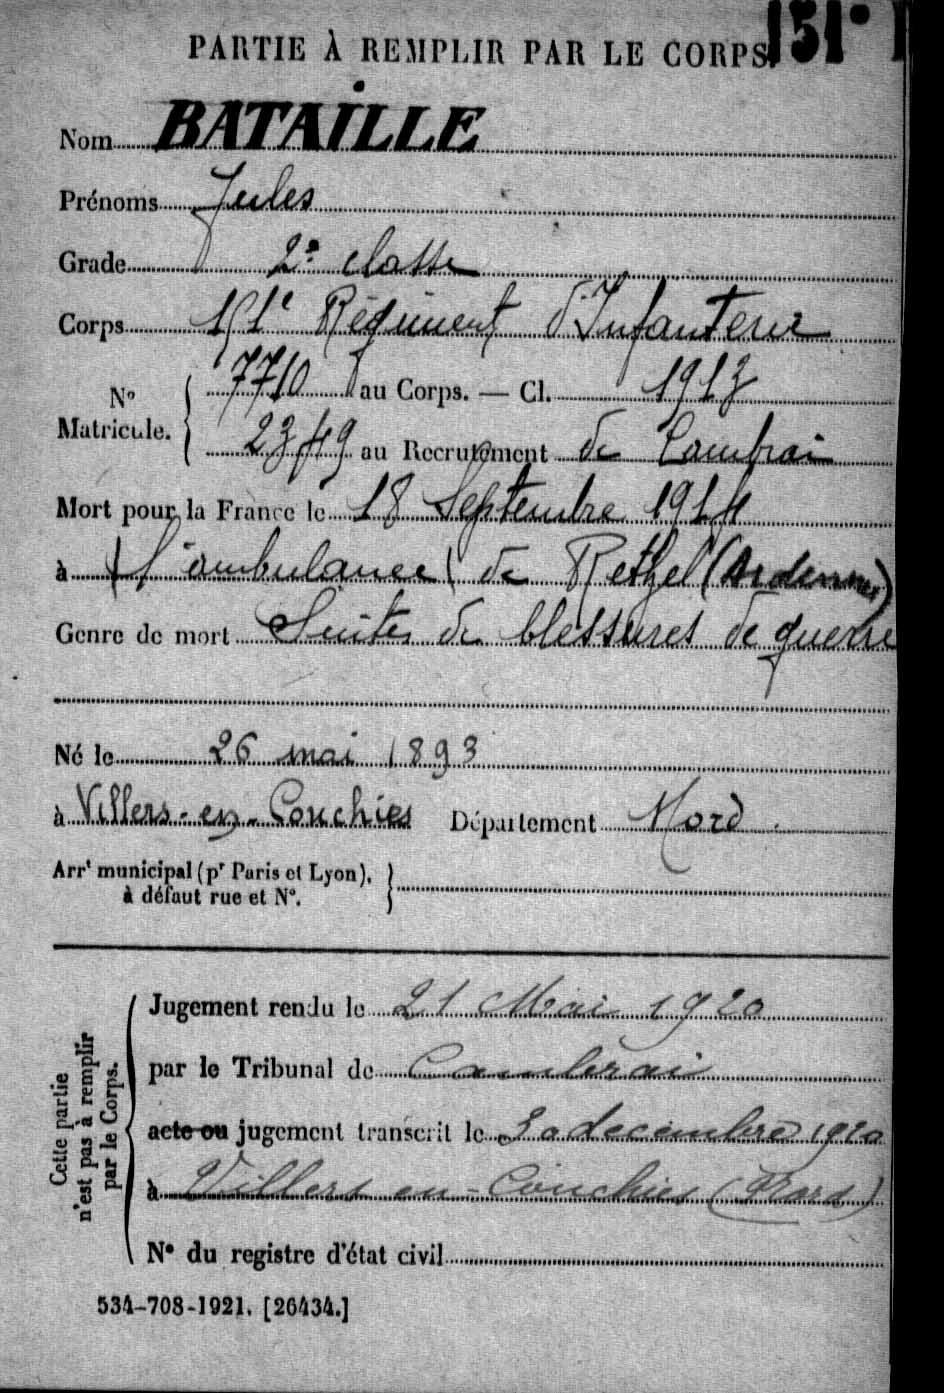 151e
PARTIE À REMPLIR PAR LE CORPS.
Nom BATAILLE
Prénoms Jules
Grade 2e classe
Corps 151e Régiment d'Infanterie
No Matricule. { 7710 au Corps. — Cl. 1913
2349 au Recrutement de Cambrai
Mort pour la France le 18 Septembre 1914
à (l'ambulance) de Rethel (Ardennes)
Genre de mort Suites de blessures de guerre
Né le 26 mai 1893
à Villers-en-Couchies Département Nord
Arrt municipal (pr Paris et Lyon), }
à défaut rue et N°.
Cette partie n'est pas à remplir par le Corps.
Jugement rendu le 21 Mai 1920
par le Tribunal de Cambrai
acte ou jugement transcrit le 30 decembre 1920
à Villers en-Couchies (Nord)
N° du registre d'état civil
534-708-1921. [26434.]